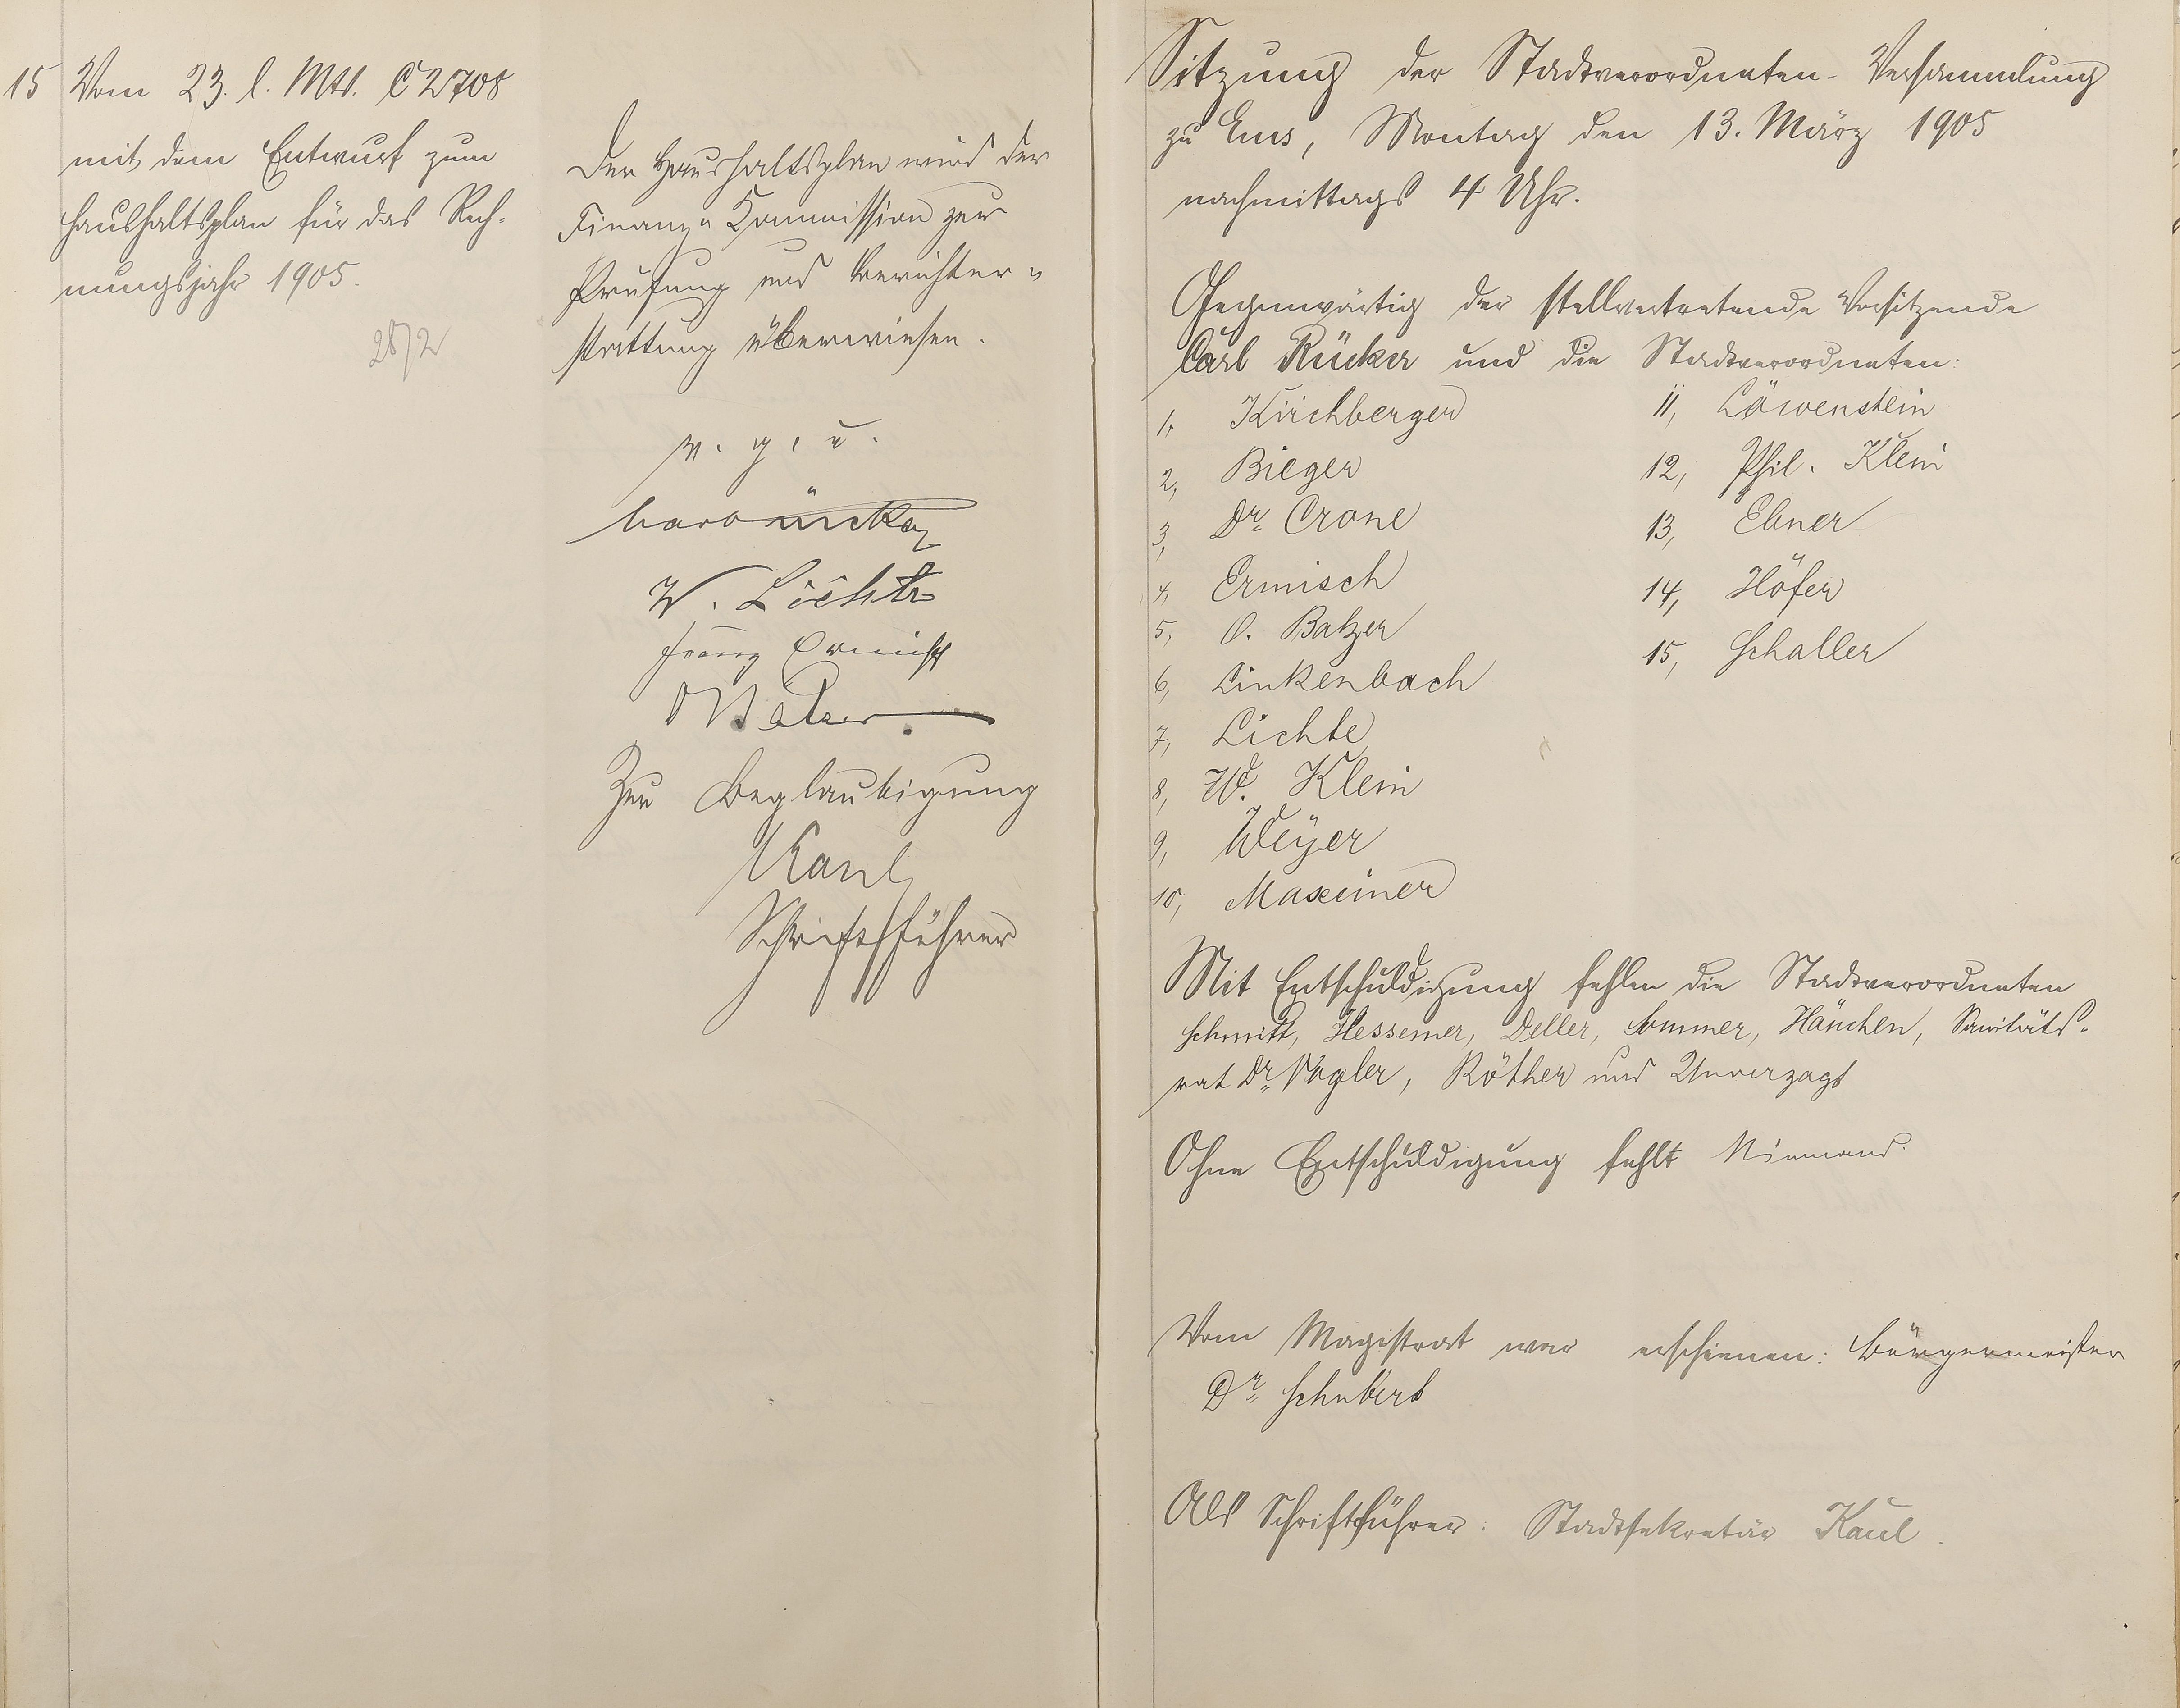 15 Vom 23. l. Mts. C 2708
mit dem Entwurf zum
Haushaltsplan für das Rech-
nungsjahr 1905.
28/2
Der Haushaltsplan wird der
Finanz-Kommission zur
Prüfung und Berichter-
stattung überwiesen.
v. g. u.
Carl Rücker
W. Lichte
Franz Ermisch
O Balzer
Zur Beglaubigung
Kaul
Schriftführer
Sitzung der Stadtverordneten-Versammlung
zu Ems, Montag den 13. März 1905
nachmittags 4 Uhr.
Gegenwärtig der stellvertretende Vorsitzende
Carl Rücker und die Stadtverordneten:
1, Kirchberger
2, Bieger
3, Dr. Crone
4, Ermisch
5, O. Balzer
6, Linkenbach
7, Lichte
8, W. Klein
9, Weyer
10, Maxeiner
11, Löwenstein
12, Phil. Klein
13, Ebner
14, Höfer
15, Schaller
Mit Entschuldigung fehlen die Stadtverordneten
Schmitt, Hessemer, Deller, Sommer, Hänchen, Sanitäts-
rat Dr. Vogler, Röther und Unverzagt
Ohne Entschuldigung fehlt Niemand.
Vom Magistrat war erschienen: Bürgermeister
Dr. Schubert
Als Schriftführer: Stadtsekretär Kaul.